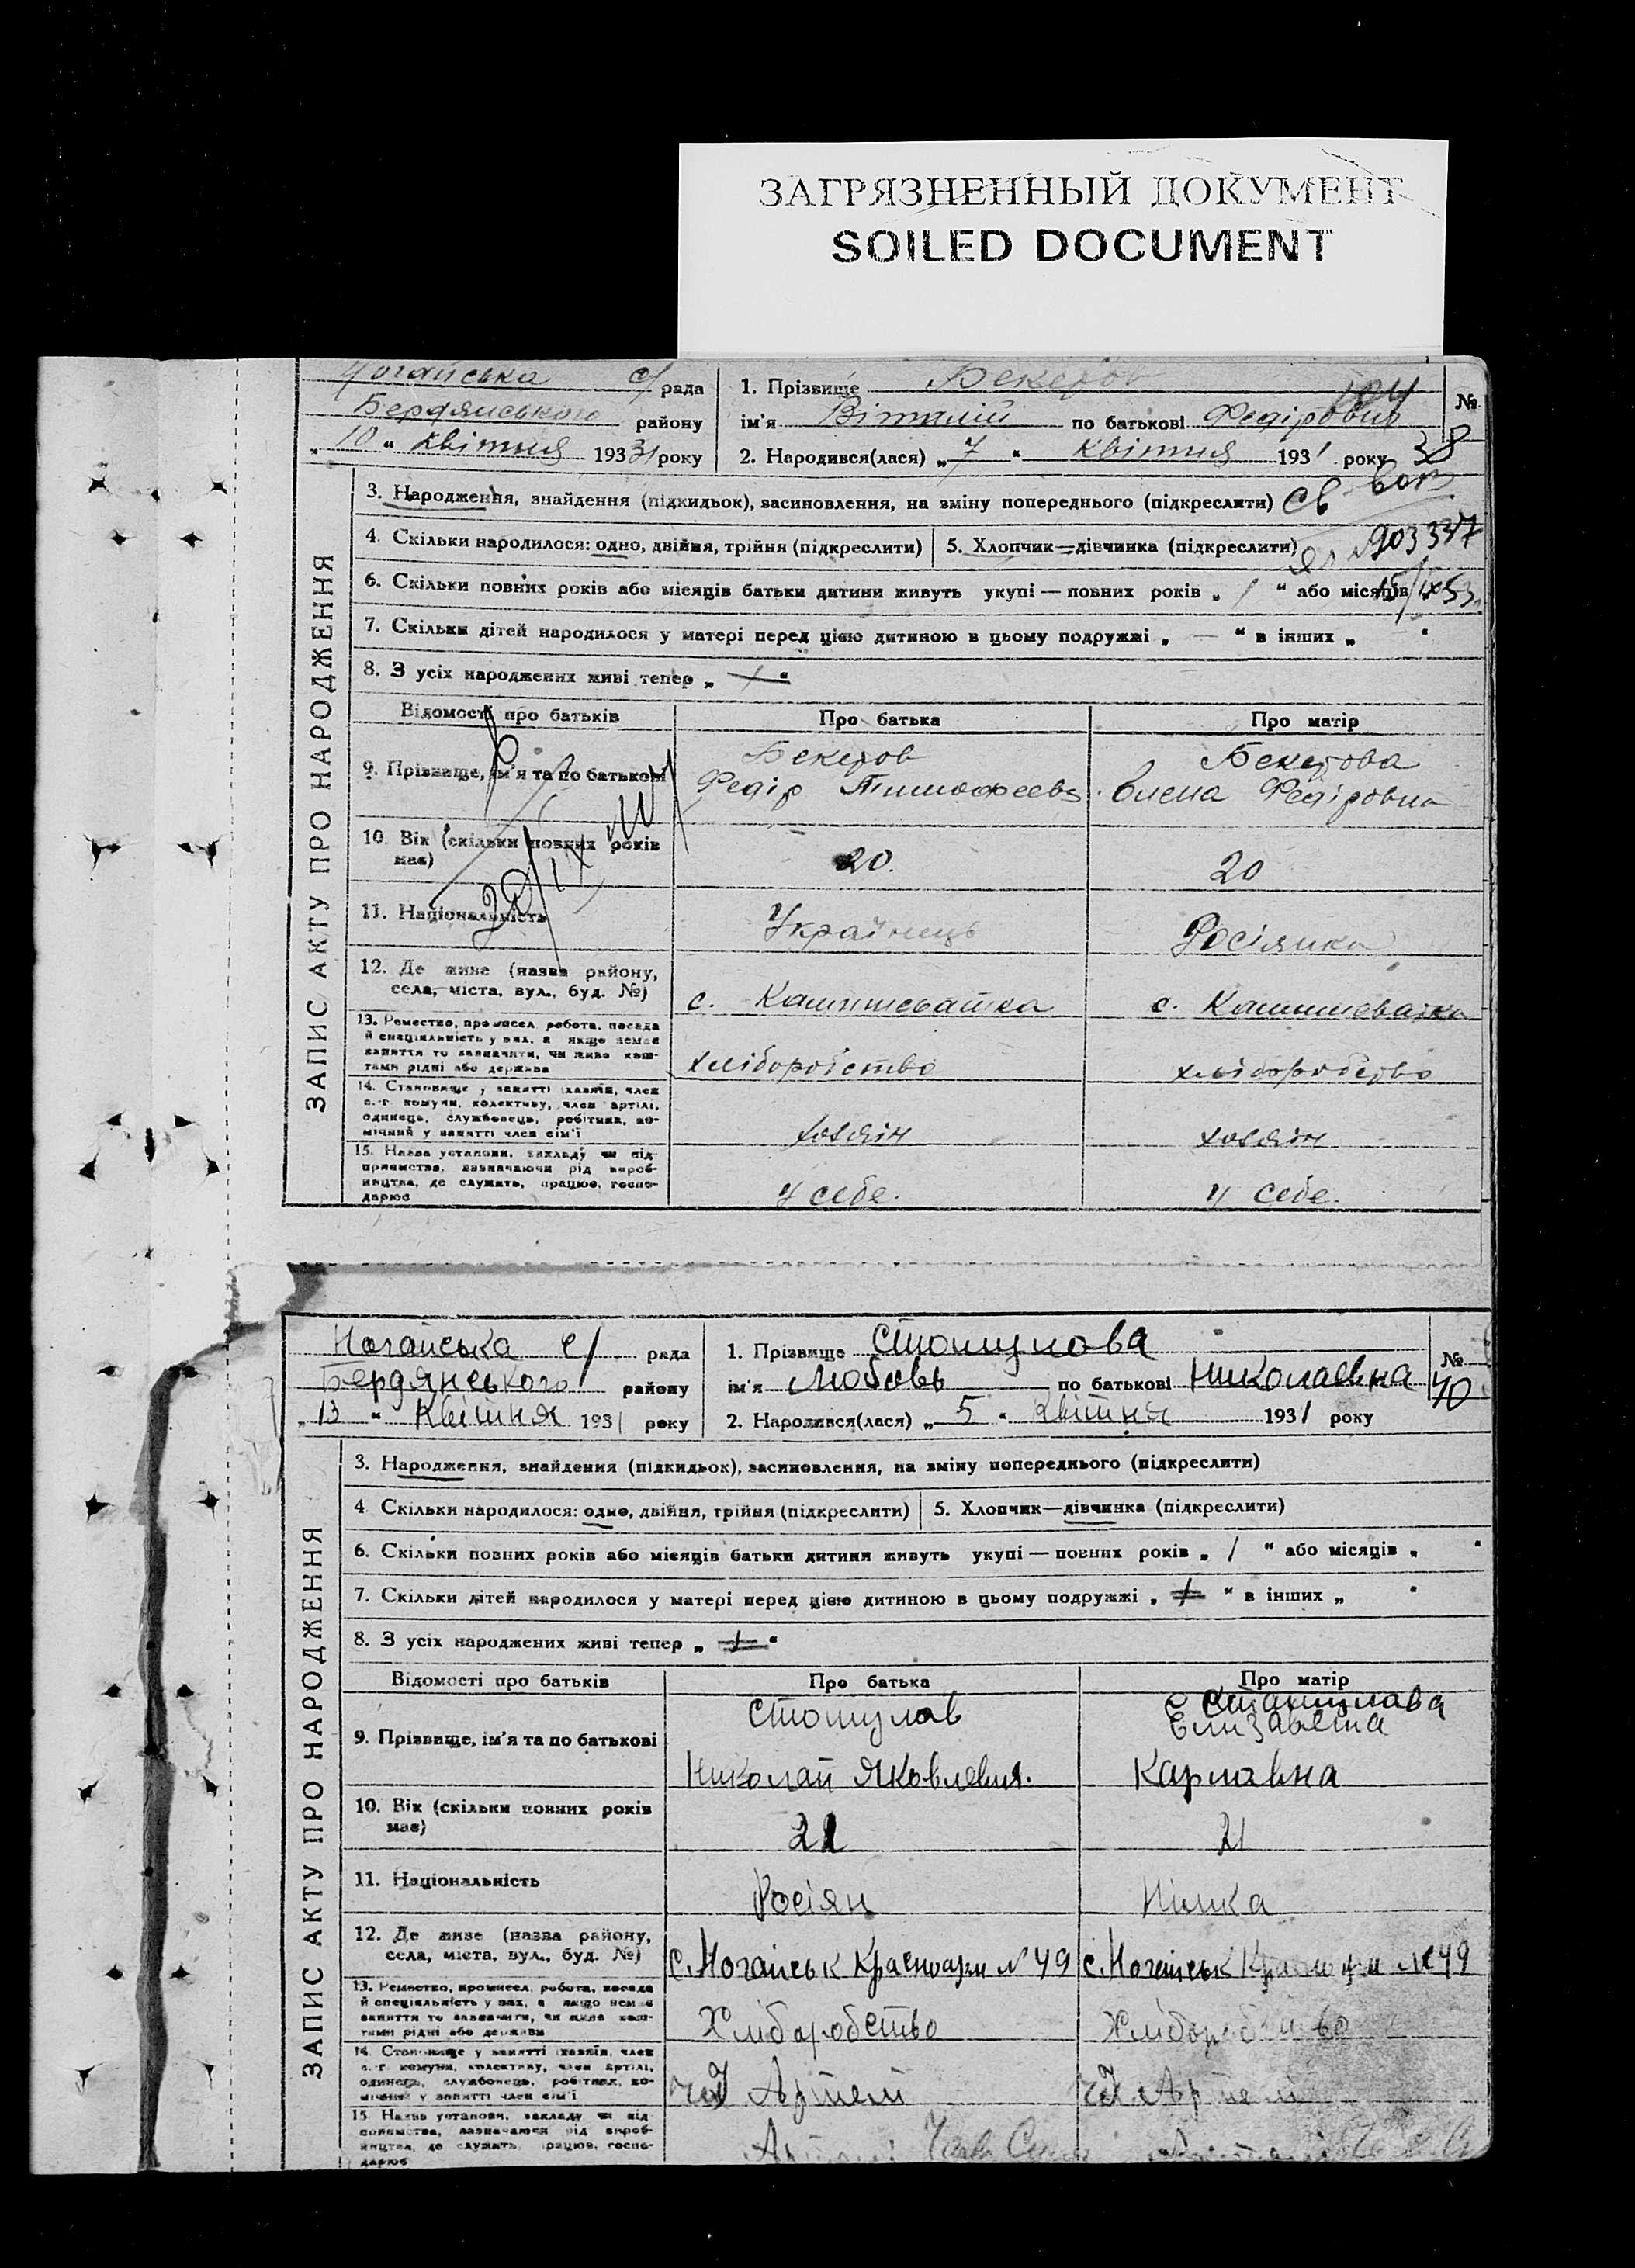 ЗАГРЯЗНЕННЫЙ ДОКУМЕНТ
SOILED DOCUMENT
Ногайська с/ рада
Бердянського району
„10“ квітня 1931 року
1. Прізвище Бекетов
ім'я Віталій по батькові Федірович
2. Народився(лася) „7“ квітня 1931 року
№ 38
104
ЗАПИС АКТУ ПРО НАРОДЖЕННЯ
3. Народження, знайдення (підкидьок), засиновлення, на зміну попереднього (підкреслити) Св
4. Скільки народилося: одно, двійня, трійня (підкреслити)
5. Хлопчик—дівчинка (підкреслити)
903337
6. Скільки повних років або місяців батьки дитини живуть укупі — повних років „1“ або місяців „
7. Скільки дітей народилося у матері перед цією дитиною в цьому подружжі „—“ в інших „ “
8. З усіх народжених живі тепер „ “
Відомості про батьків Про батька Про матір
9. Прізвище, ім'я та по батькові
Бекетов
Федір Тимофеев
Бекетова
Елена Федіровна
10. Вік (скільки повних років має)
20.
20
11. Національність
Українець
Росіянка
12. Де живе (назва району, села, міста, вул., буд. №)
с.
с.
13. Ремество, промисел, робота, посада й спеціяльність у них, а якщо немає заняття то зазначити, чи живе коштами рідні або держави
хліборобство
хліборобство
14. Становище у занятті (хазяїн, член с.-г. комуни, колективу, член артілі, одинець, службовець, робітник, помічний у занятті член сім'ї
хозяїн
хозяїн
15. Назва установи, закладу чи підприємства, зазначаючи рід виробництва, де служать, працює, господарює
у себе.
у себе.
Ногайська с/ рада
Бердянського району
„13“ Квітня 1931 року
1. Прізвище Стошулова
ім'я Любовь по батькові Николаевна
2. Народився(лася) „5“ квітня 1931 року
№ 40
ЗАПИС АКТУ ПРО НАРОДЖЕННЯ
3. Народження, знайдення (підкидьок), засиновлення, на зміну попереднього (підкреслити)
4. Скільки народилося: одно, двійня, трійня (підкреслити)
5. Хлопчик—дівчинка (підкреслити)
6. Скільки повних років або місяців батьки дитини живуть укупі — повних років „1“ або місяців „ “
7. Скільки дітей народилося у матері перед цією дитиною в цьому подружжі „ “ в інших „ “
8. З усіх народжених живі тепер „ “
Відомості про батьків Про батька Про матір
9. Прізвище, ім'я та по батькові
Стошулов
Николай Яковлевич.
Елизавета
Карловна
10. Вік (скільки повних років має)
22
21
11. Національність
Росіян
Німка
12. Де живе (назва району, села, міста, вул., буд. №)
с. Ногайськ Красноарм № 49
с. Ногайськ Красноарм № 49
13. Ремество, промисел, робота, посада й спеціяльність у них, а якщо немає заняття то зазначити, чи живе коштами рідні або держави
Хліборобство
Хліборобство
14. Становище у занятті (хазяїн, член с.-г. комуни, колективу, член артілі, одинець, службовець, робітник, помічний у занятті член сім'ї
Артелі
Артелі
15. Назва установи, закладу чи підприємства, зазначаючи рід виробництва, де служать, працює, господарює